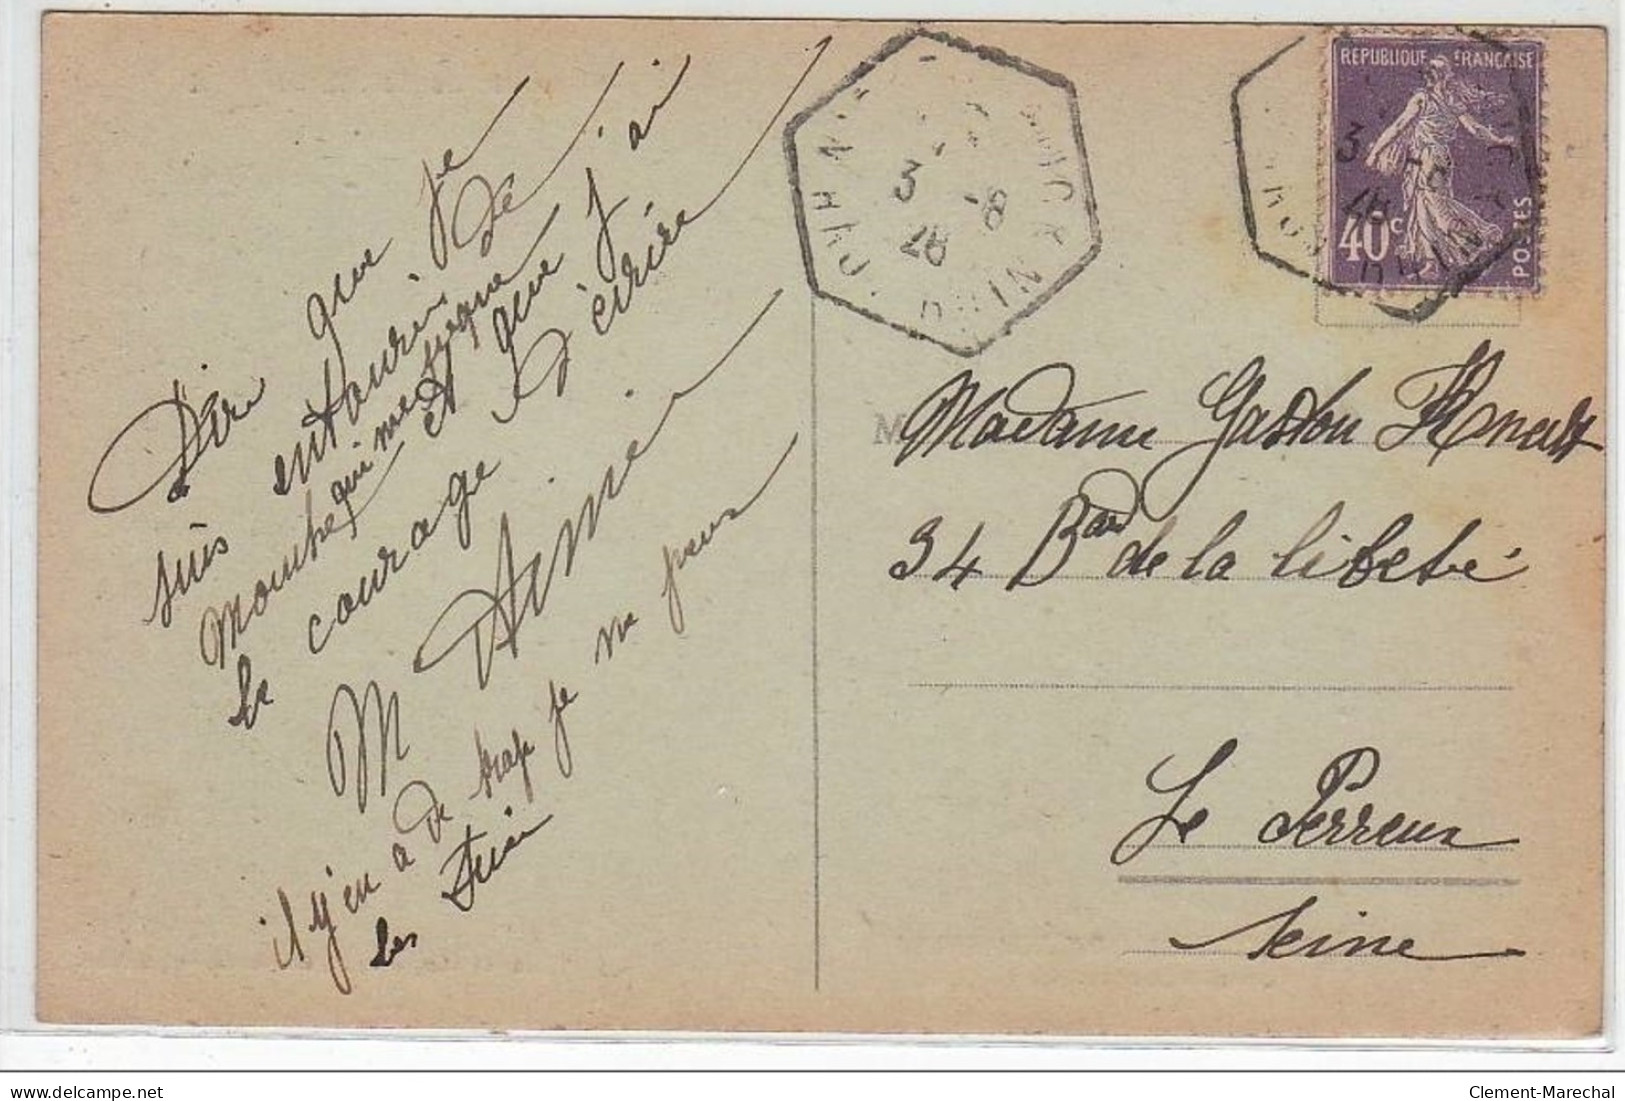 Dire que je
suis entourée de
Mouches qui me pique
et que j'ai
le courage d'écrire
M Aimée
il y en a de trop je ne peux
les
REPUBLIQUE FRANCAISE
40c
POSTES
3 -8
26
3 -8
26
M
Madame Gaston
34 Bard de la liberté
Le Perreux
Seine
delcampe.net
Clement-Marechal